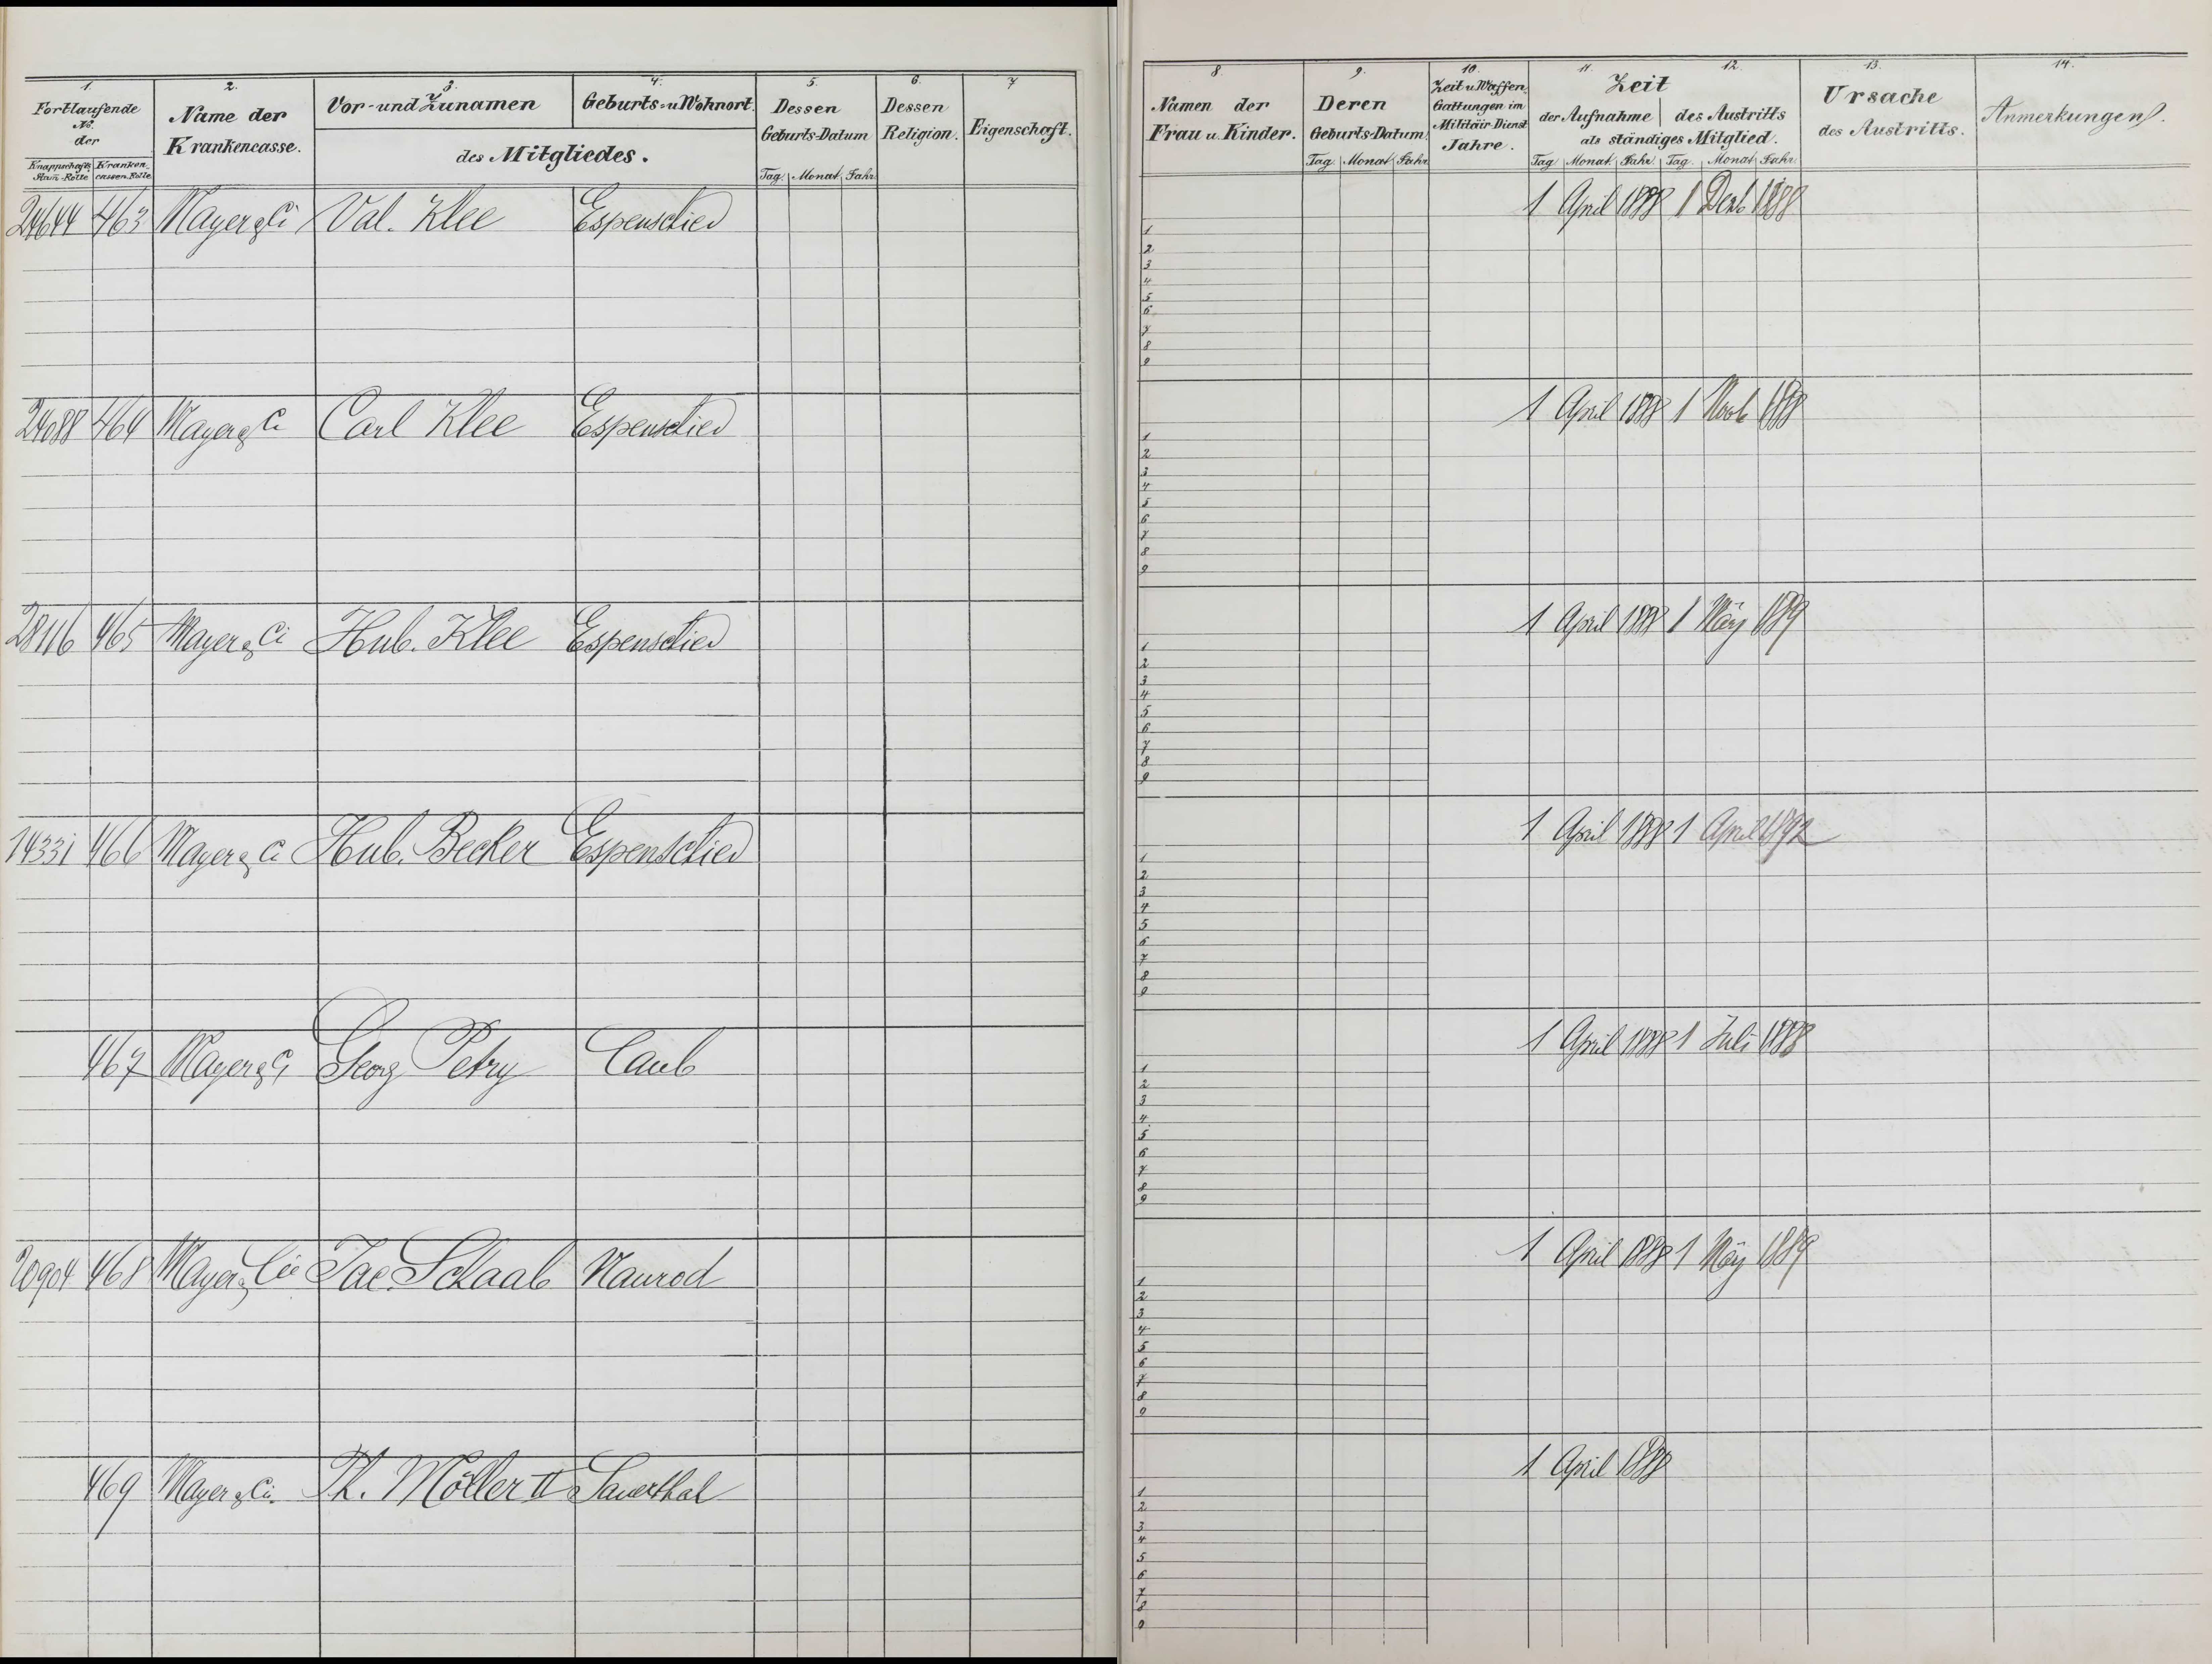 1. 2. 3. 4. 5. 6. 7
Fortlaufende No. der
Knappschafts Stam-Rolle Kranken-cassen-Rolle
Name der Krankencasse.
Vor- und Zunamen Geburts- u. Wohnort.
des Mitgliedes.
Dessen Geburts-Datum
Tag. Monat Jahr.
Dessen Religion.
Eigenschaft.
24644 463 Mayer & Ci Val. Klee Espenschied
24088 464 Mayer & Ci Carl Klee Espenschied
28116 465 Mayer & Ci Hub. Klee Espenschied
14331 466 Mayer & Ci Hub. Becker Espenschied
467 Mayer & Ci Georg Petry Caub
20904 468 Mayer & Cie Jac. Schaab Naurod
469 Mayer & Ci. Ph. Möller II Sauerthal
8. 9. 10. 11. 12. 13. 14.
Namen der Frau u. Kinder.
Deren Geburts-Datum
Tag. Monat Jahr
Zeit u. Waffen Gattungen im Militair-Dienst Jahre.
Zeit
der Aufnahme des Austritts
als ständiges Mitglied.
Tag Monat Jahr Tag. Monat Jahr
Ursache des Austritts.
Anmerkungen.
1 April 1888 1 Dezb 1888
1
2
3
4
5
6
7
8
9
1 April 1888 1 Novb 1888
1
2
3
4
5
6
7
8
9
1 April 1888 1 März 1889
1
2
3
4
5
6
7
8
9
1 April 1888 1 April 1892
1
2
3
4
5
6
7
8
9
1 April 1888 1 Juli 1888
1
2
3
4
5
6
7
8
9
1 April 1888 1 März 1889
1
2
3
4
5
6
7
8
9
1 April 1888
1
2
3
4
5
6
7
8
9